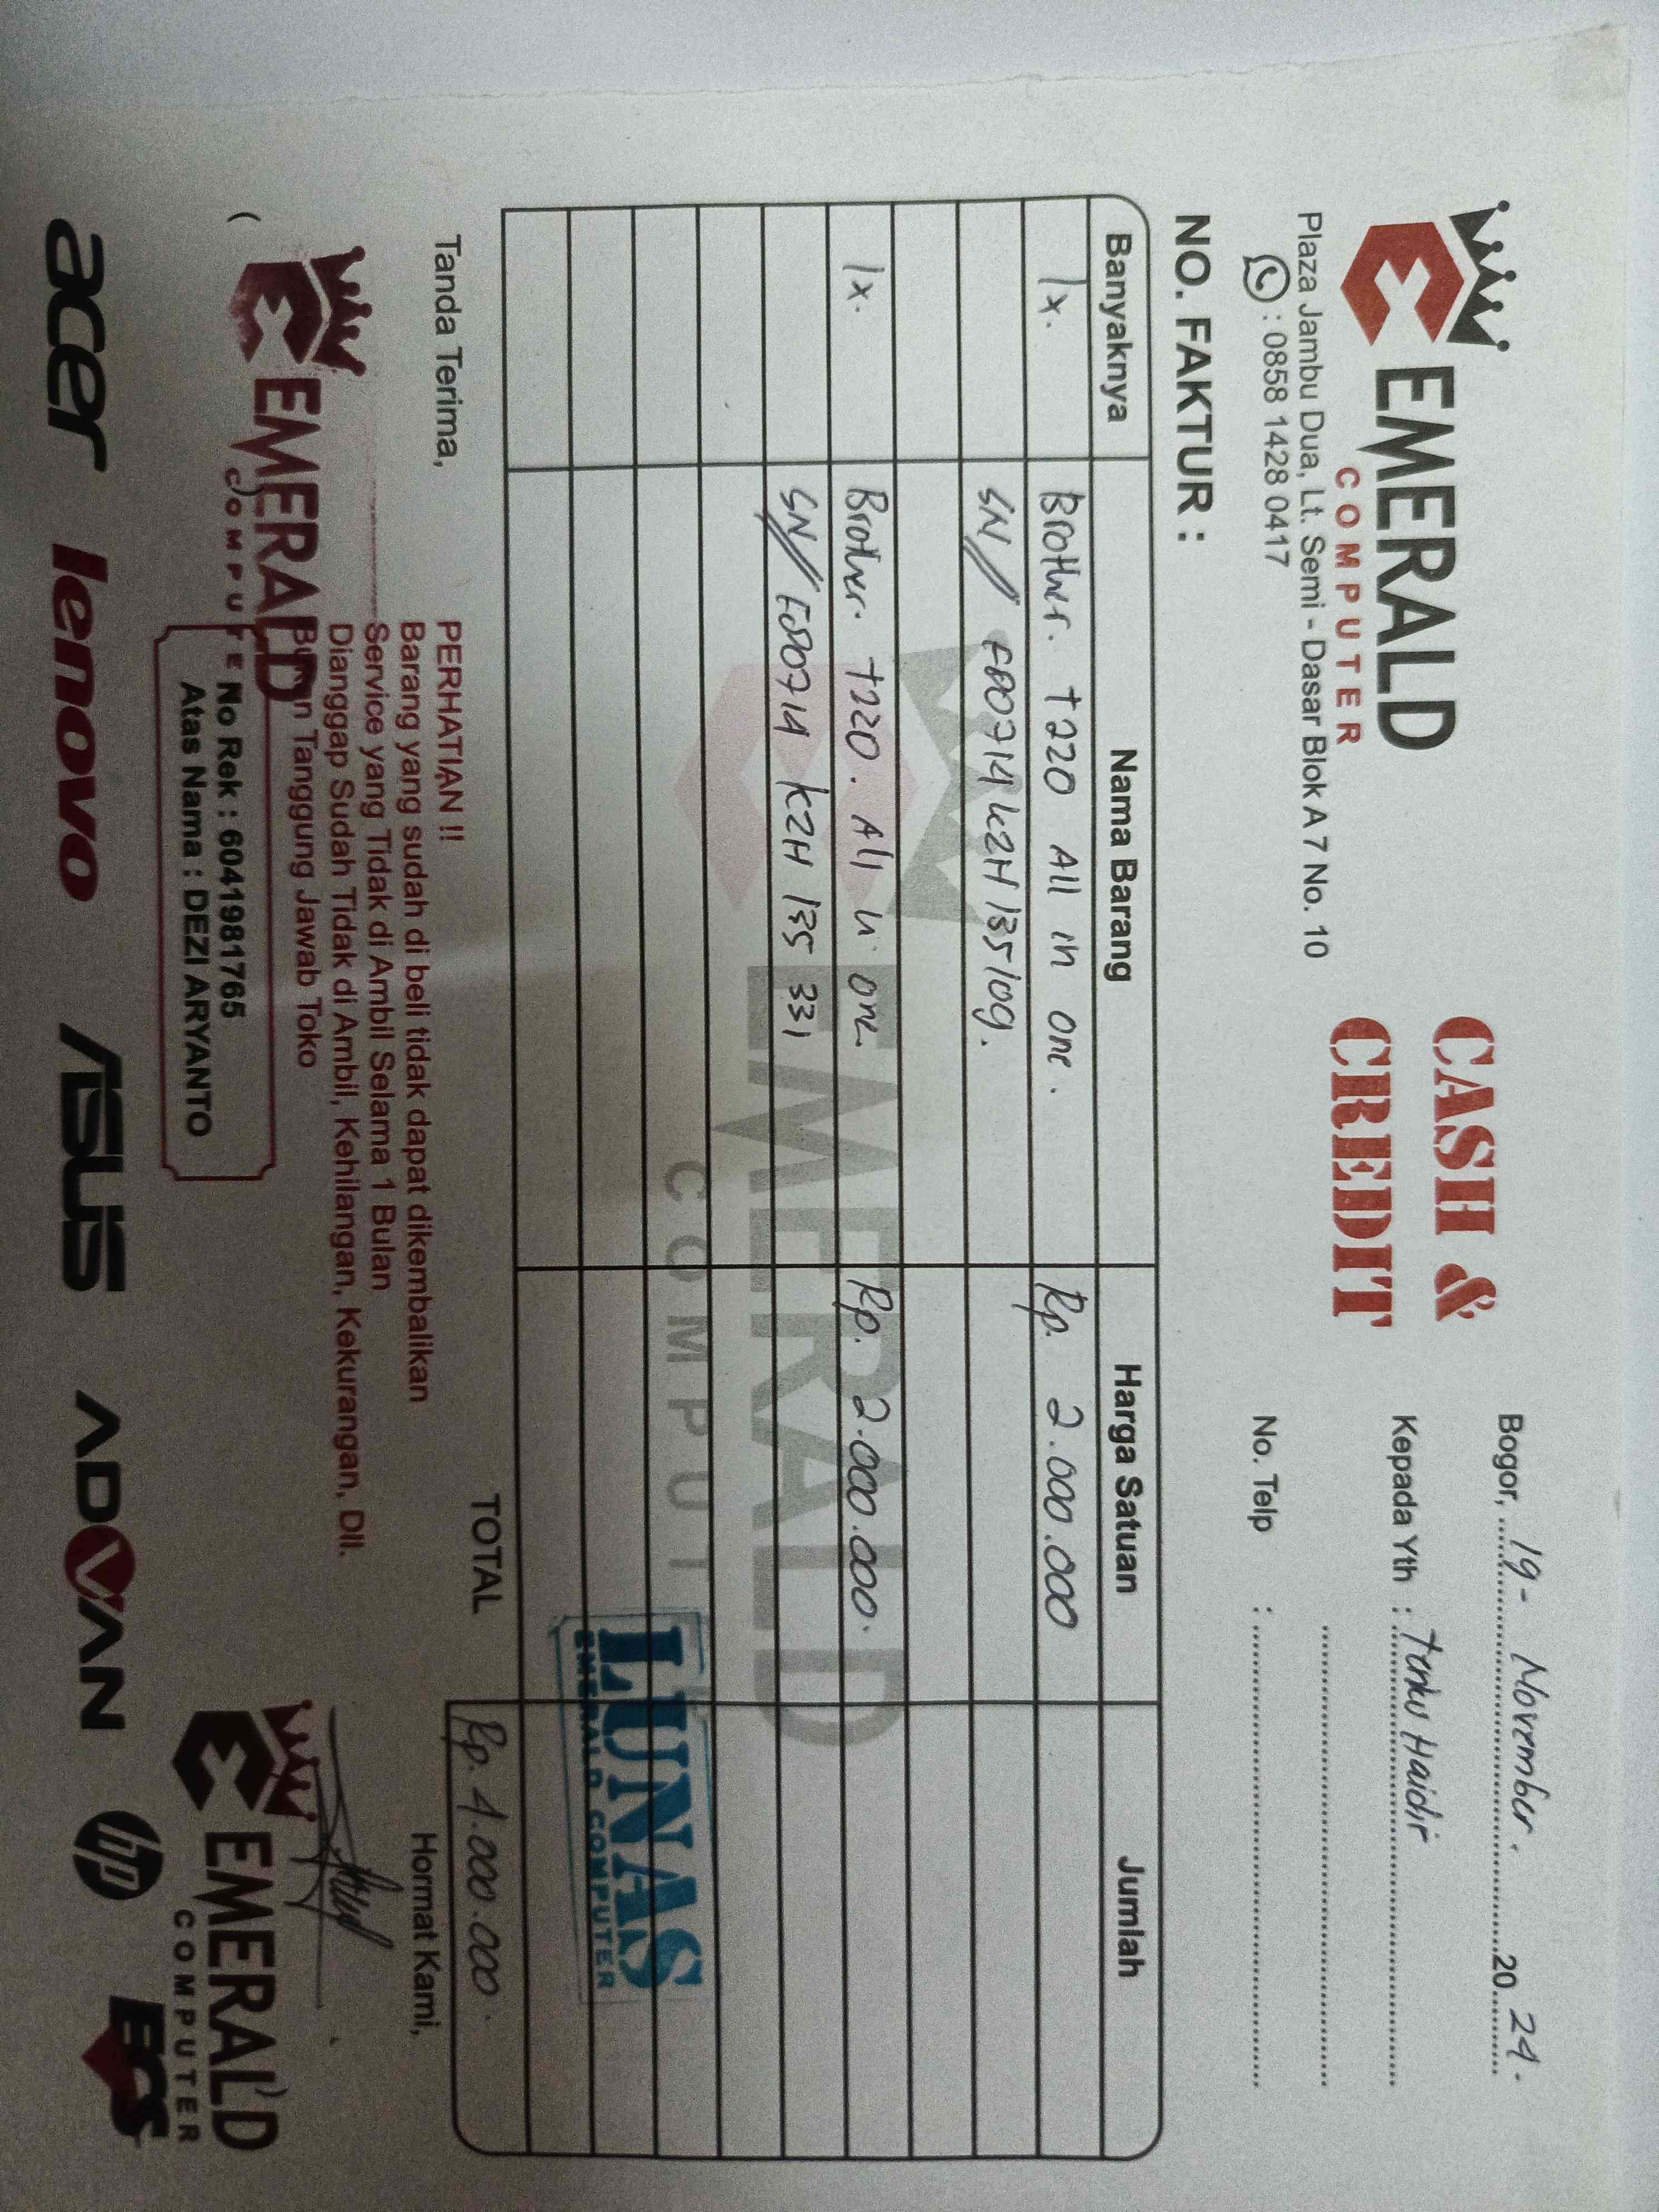 EMERALD
COMPUTER
CASH &
CREDIT
Plaza Jambu Dua, Lt. Semi - Dasar Blok A 7 No. 10
: 0858 1428 0417
Bogor, 19 - November. 2024.
Kepada Yth : Haidir
No. Telp :
NO. FAKTUR :
Banyaknya Nama Barang Harga Satuan Jumlah
1x. Brother. T220 All in one. Rp. 2.000.000
SN//
1x. Brother. T220. All in one. Rp. 2.000.000.
SN//
EMERALD
COMPUTER
LUNAS
EMERALD COMPUTER
TOTAL Rp. 4.000.000.
Tanda Terima,
PERHATIAN !!
Barang yang sudah di beli tidak dapat dikembalikan
Service yang Tidak di Ambil Selama 1 Bulan
Dianggap Sudah Tidak di Ambil, Kehilangan, Kekurangan, Dll.
Bukan Tanggung Jawab Toko
Hormat Kami,
EMERALD
COMPUTER
No Rek : 6041981765
Atas Nama : DEZI ARYANTO
EMERALD
COMPUTER
acer lenovo ASUS ADVAN hp ECS